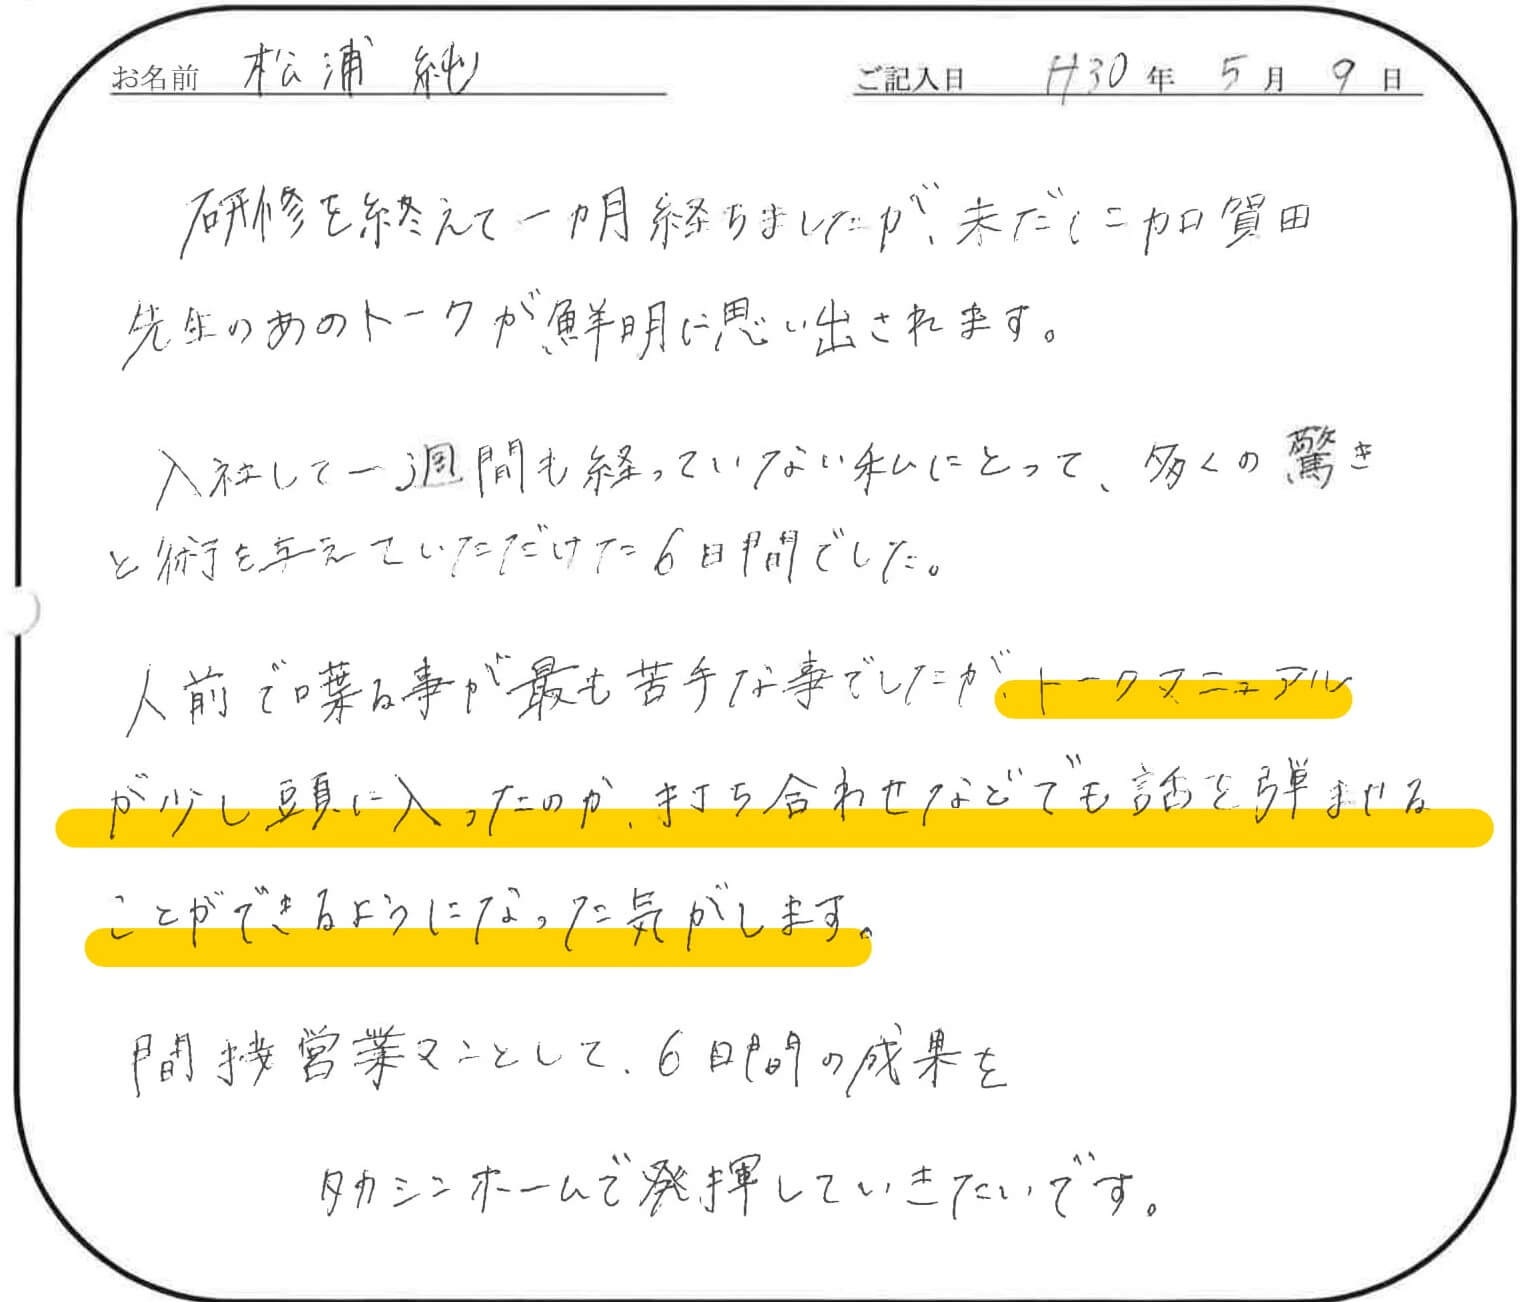 お名前 松浦 純 ご記入日 H30年 5月 9日
研修を終えて一カ月経ちましたが、未だに加賀田
先生のあのトークが鮮明に思い出されます。
入社して一週間も経っていない私にとって、多くの驚き
と術を与えていただけた6日間でした。
人前で喋る事が最も苦手な事でしたが、トークマニュアル
が少し頭に入ったのか、打ち合わせなどでも話を弾ませる
ことができるようになった気がします。
間接営業マンとして、6日間の成果を
タカシンホームで発揮していきたいです。